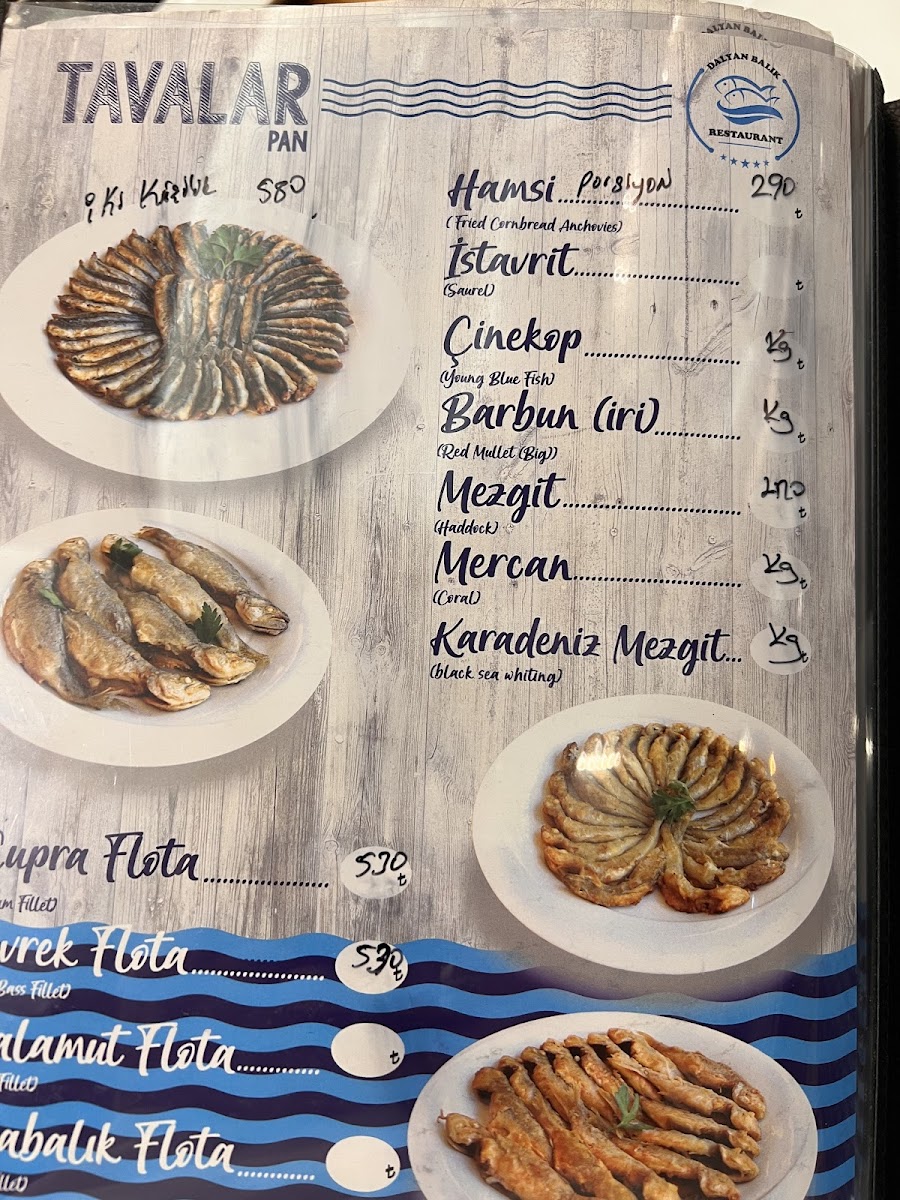 TAVALAR
PAN
DALYAN BALIK
RESTAURANT
iki Kişilik 580
Hamsi Porsiyon 290 ₺
(Fried Cornbread Anchovies)
İstavrit ₺
(Saurel)
Çinekop Kg ₺
(Young Blue Fish)
Barbun (iri) Kg ₺
(Red Mullet (Big))
Mezgit ₺
(Haddock)
Mercan Kg ₺
(Coral)
Karadeniz Mezgit... Kg ₺
(black sea whiting)
Çupra Flota 530 ₺
Fillet)
vrek Flota 530 ₺
Bass Fillet)
alamut Flota ₺
Fillet)
abalık Flota ₺
llet)